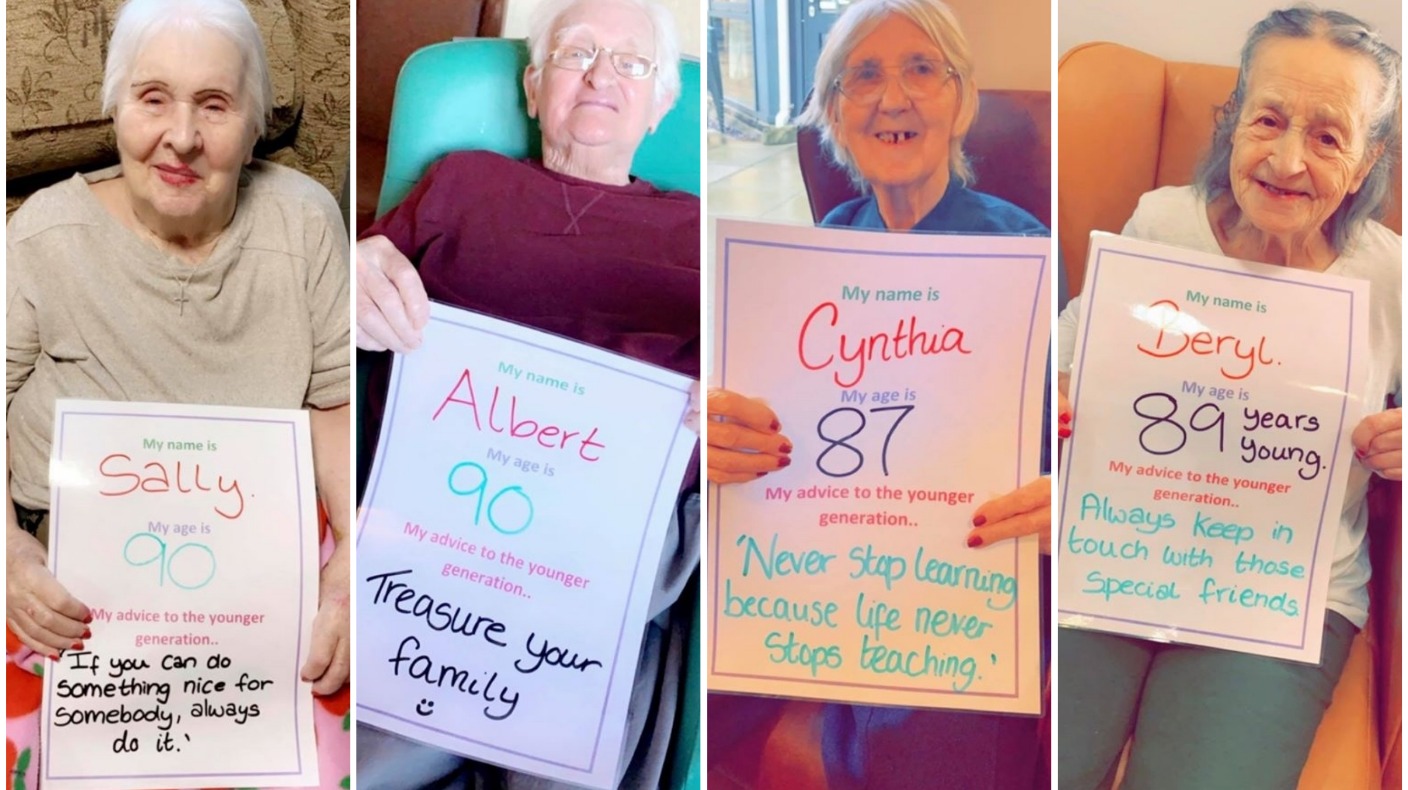 My name is
Sally.
My age is
90
My advice to the younger
generation..
'If you can do
something nice for
somebody, always
do it.'
My name is
Albert
My age is
90
My advice to the younger
generation..
Treasure your
family
My name is
Cynthia
My age is
87
My advice to the younger
generation..
'Never stop learning
because life never
stops teaching.'
My name is
Beryl.
My age is
89 years
young.
My advice to the younger
generation..
Always keep in
touch with those
special friends.